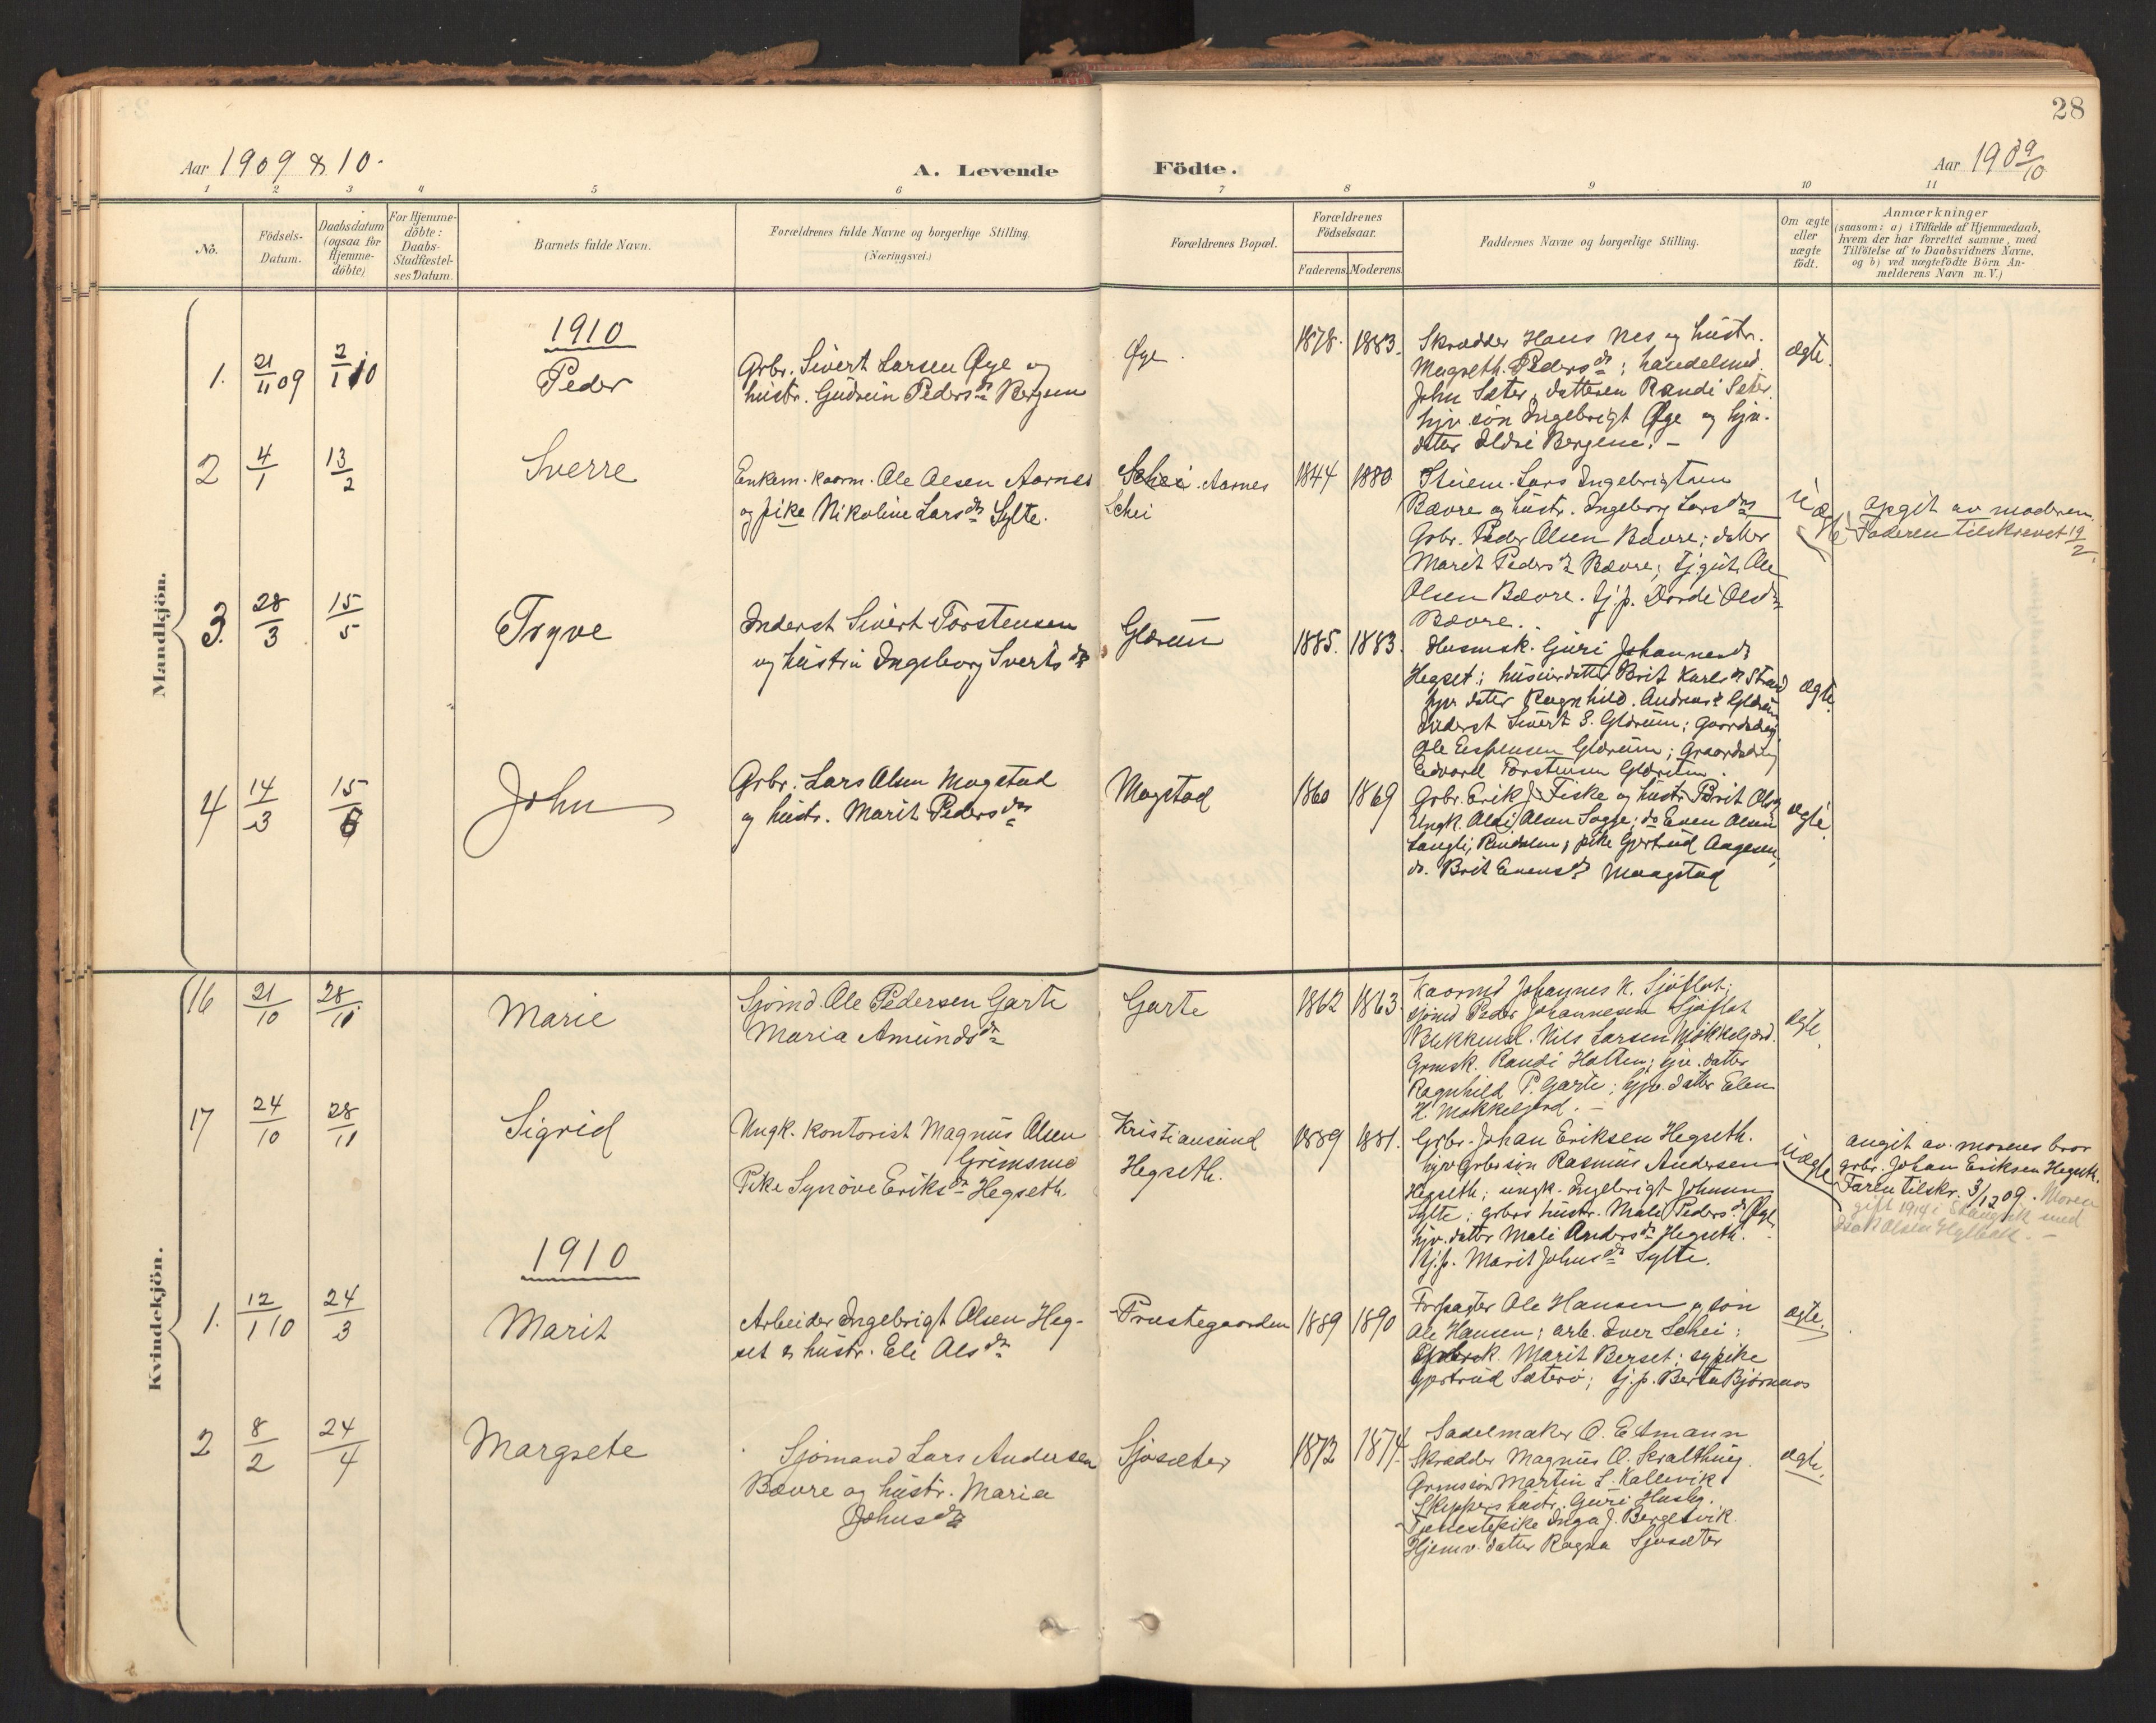 28
Aar 1909 & 10.
A. Levende
Födte.
Aar 1909/10
1 2 3 4 5 6 7 8 9 10 11
No.
Födsels-Datum.
Daabsdatum (ogsaa for Hjemme-döbte)
For Hjemme-döbte: Daabs-Stadfæstel-ses Datum.
Barnets fulde Navn.
Forældrenes fulde Navne og borgerlige Stilling.
(Næringsvei.)
Forældrenes Bopæl.
Forældrenes Födselsaar.
Faderens. Moderens.
Faddernes Navne og borgerlige Stilling.
Om ægte eller uægte födt.
Anmærkninger
(saasom: a) i Tilfælde af Hjemmedaab,
hvem der har forrettet samme, med
Tilföielse af to Daabsvidners Navne.
og b) ved uægtefödte Börn An-
melderens Navn m. V.)
Mandkjön.
1910
1. 21/11 09 2/1 10 Peder
Grbr. Sivert Larsen Øye og
hustr. Gudrun Pedersdr Bergem
Øye.
1878. 1883.
Skrædder Hans Nes og hustr.
Magreth. Pedersdr; handelsmd.
John Sæter, datteren Randi Sæter
hjv. søn Ingebrigt Øye og hjv.
datter Ildri Bergem. -
ægte.
2 4/1 13/2 Sverre
Enkem. kaarm. Ole Olsen Aarnes
og pike Nikoline Larsdr Sylte.
Schei. Aarnes
Schei
1844 1880
Stuem. Lars Ingebrigtsen
Bævre og hustr. Ingeborg Larsdr
Grbr. Peder Olsen Bævre; datter
Marit Pedersdr Bævre; tj.gut. Ole
Olsen Bævre. tj.p. Dordi Olsdr
Bævre.
uægte
Opgit av moderen.
Faderen tilskrevet 19/2.
3. 28/3 15/5 Trygve
Inderst Sivert Torstensen
og hustru Ingeborg Sivertsdr
Glærum
1885. 1883.
Husmsk. Guri Johannesdr
Hegset; husmdatter Brit Karlsdr Strand
hjv. datter Ragnhild. Andreasdr Glærum
Inderst Sivert S. Glærum; gaardsdreng
Ole Espensen Glærum; Graardsdreng
Edvard Torstensen Glærum.
ægte.
4 14/3 15/6 John
Grbr. Lars Olsen Mogstad
og hustr. Marit Pedersdr
Mogstad
1860 1869
Grbr. Erik J. Fiske og hustr. Brit Olsdr
Ungk. Olaf Olsen Sogge; do Even Olsen
Langli, Rindalen; pike Gjertrud Aagesen,
do. Brit Evensdr Maagstad
ægte.
Kvindekjön.
16 21/10 28/11 Marie
Sjømd. Ole Pedersen Garte
Maria Amundsdr
Garte
1862 1863.
Kaarmd Johannes K. Sjøflot;
sjømd Peder Johannesen Sjøflot
Blikkensl. Nils Larsen Mokkelgjerd.
Grmsk. Randi Holten; hjv. datter
Ragnhild P. Garte; hjv. datter Elen
H. Mokkelgjerd. -
ægte.
17 24/10 28/11 Sigrid
Ungk. kontorist Magnus Olsen
Grimsmo
Pike Synøve Eriksdr Hegseth.
Kristiansund
Hegseth.
1889 1881.
Grbr. Johan Eriksen Hegseth.
hjv grbr søn Rasmus Andersen
Hegseth; ungk. Ingebrigt Johnsen
Sylte; grbrs hustr. Mali Pedersdr Øye
hjv. datter Mali Andersdr Hegseth.
tj.p. Marit Johnsdr Sylte.
uægte
angit av morens bror
grbr. Johan Eriksen Hegseth.
Faren tilskr. 3/12 09. Moren
gift 1914 i Stangvik med
Isak Olsen . -
1910
1. 12/1 10 24/3 Marit
Arbeider Ingebrigt Olsen Heg-
set & hustr. Eli Olsdr
Prestegaarden
1889 1890
Forpagter Ole Hansen og søn
Ole Hansen; arb. Iver Schei;
Marit Berset; sypike
Gjertrud Sæterø; tj.p. Berta Bjørnaas
ægte.
2 8/2 24/4 Margrete
Sjømand Lars Andersen
Bævre og hustr. Maria
Johnsdr
Sjøsæter
1872 1874.
Sadelmaker O. Estmann
Skrædder Magnus O. Skralthaug.
Grmsøn Martin L. Kallevik
Skippers hustr. Guri Husby.
Tjenestepike Inga J. Bergesvik
Hjemv. datter Ragna Sjøsæter
ægte.